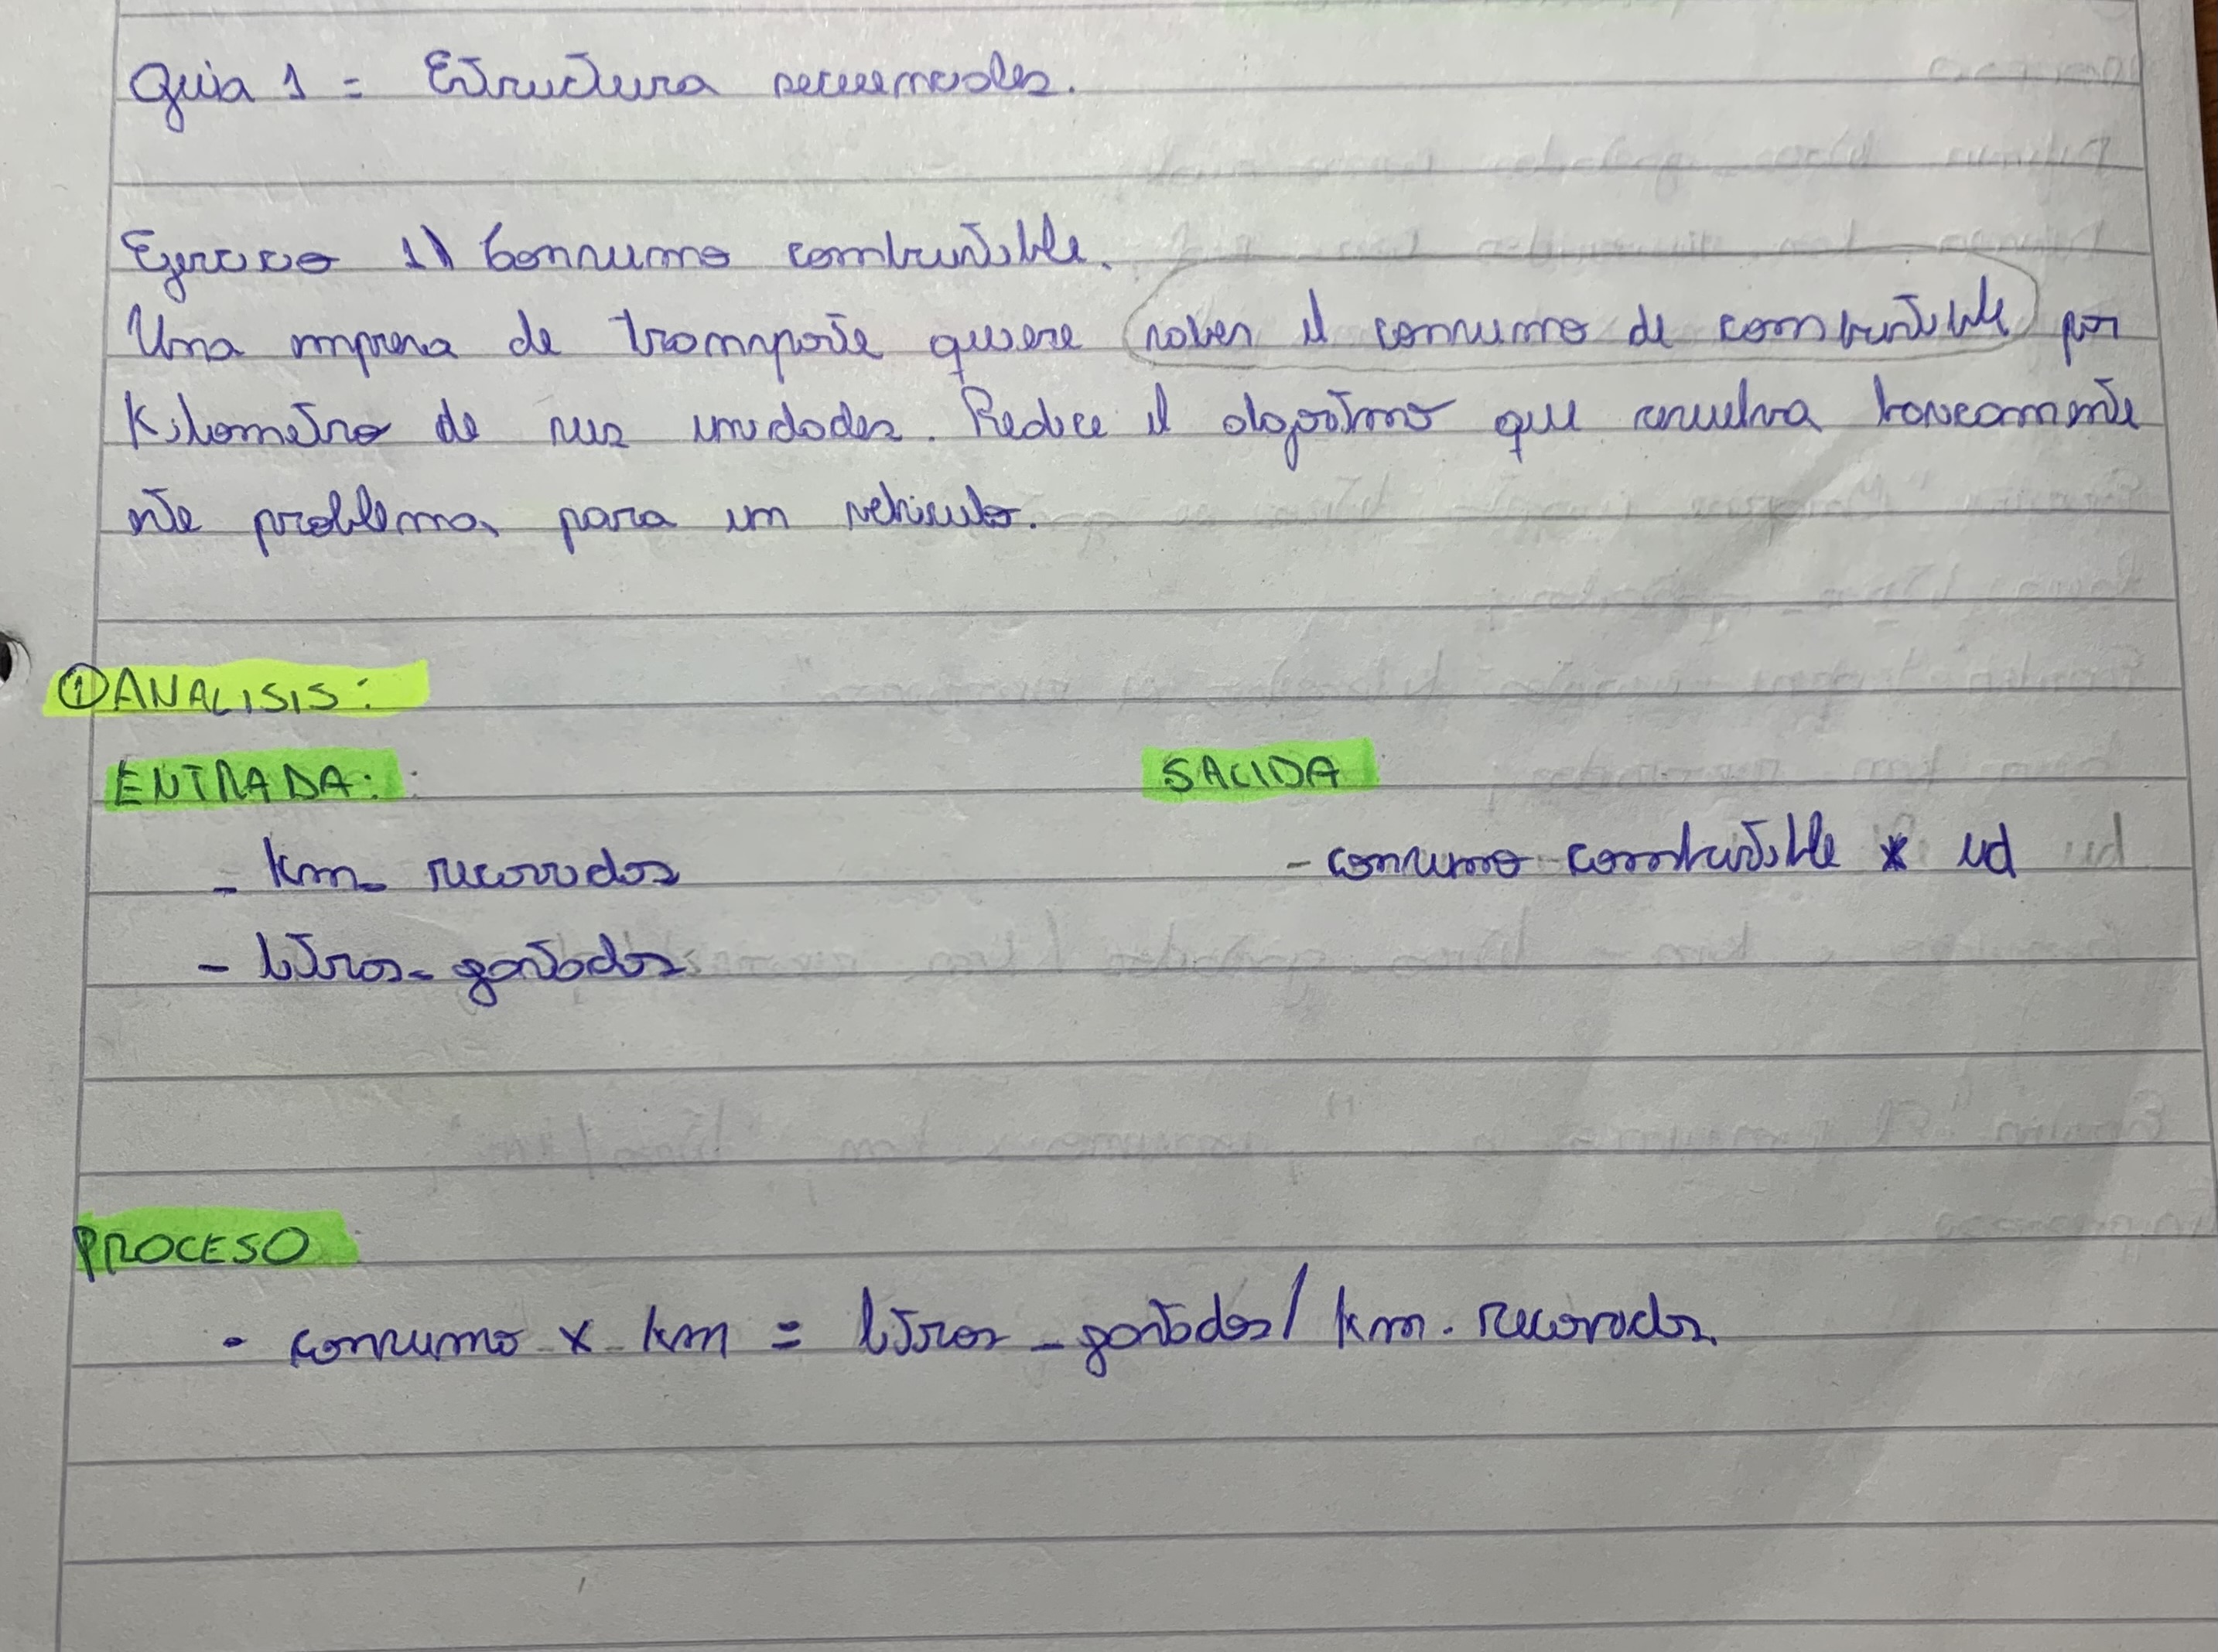 Guia 1 = Estructura secuenciales.
Ejercicio 1) Consumo combustible.
Una empresa de transporte quiere saber el consumo de combustible por
Kilometro de sus unidades. Realice el algoritmo que resuelva basicamente
este problema para un vehiculo.
① ANALISIS:
ENTRADA: SALIDA
- km_recorridos - consumo combustible x ud
- litros_gastados
PROCESO
- consumo_x_km = litros_gastados / km_recorridos